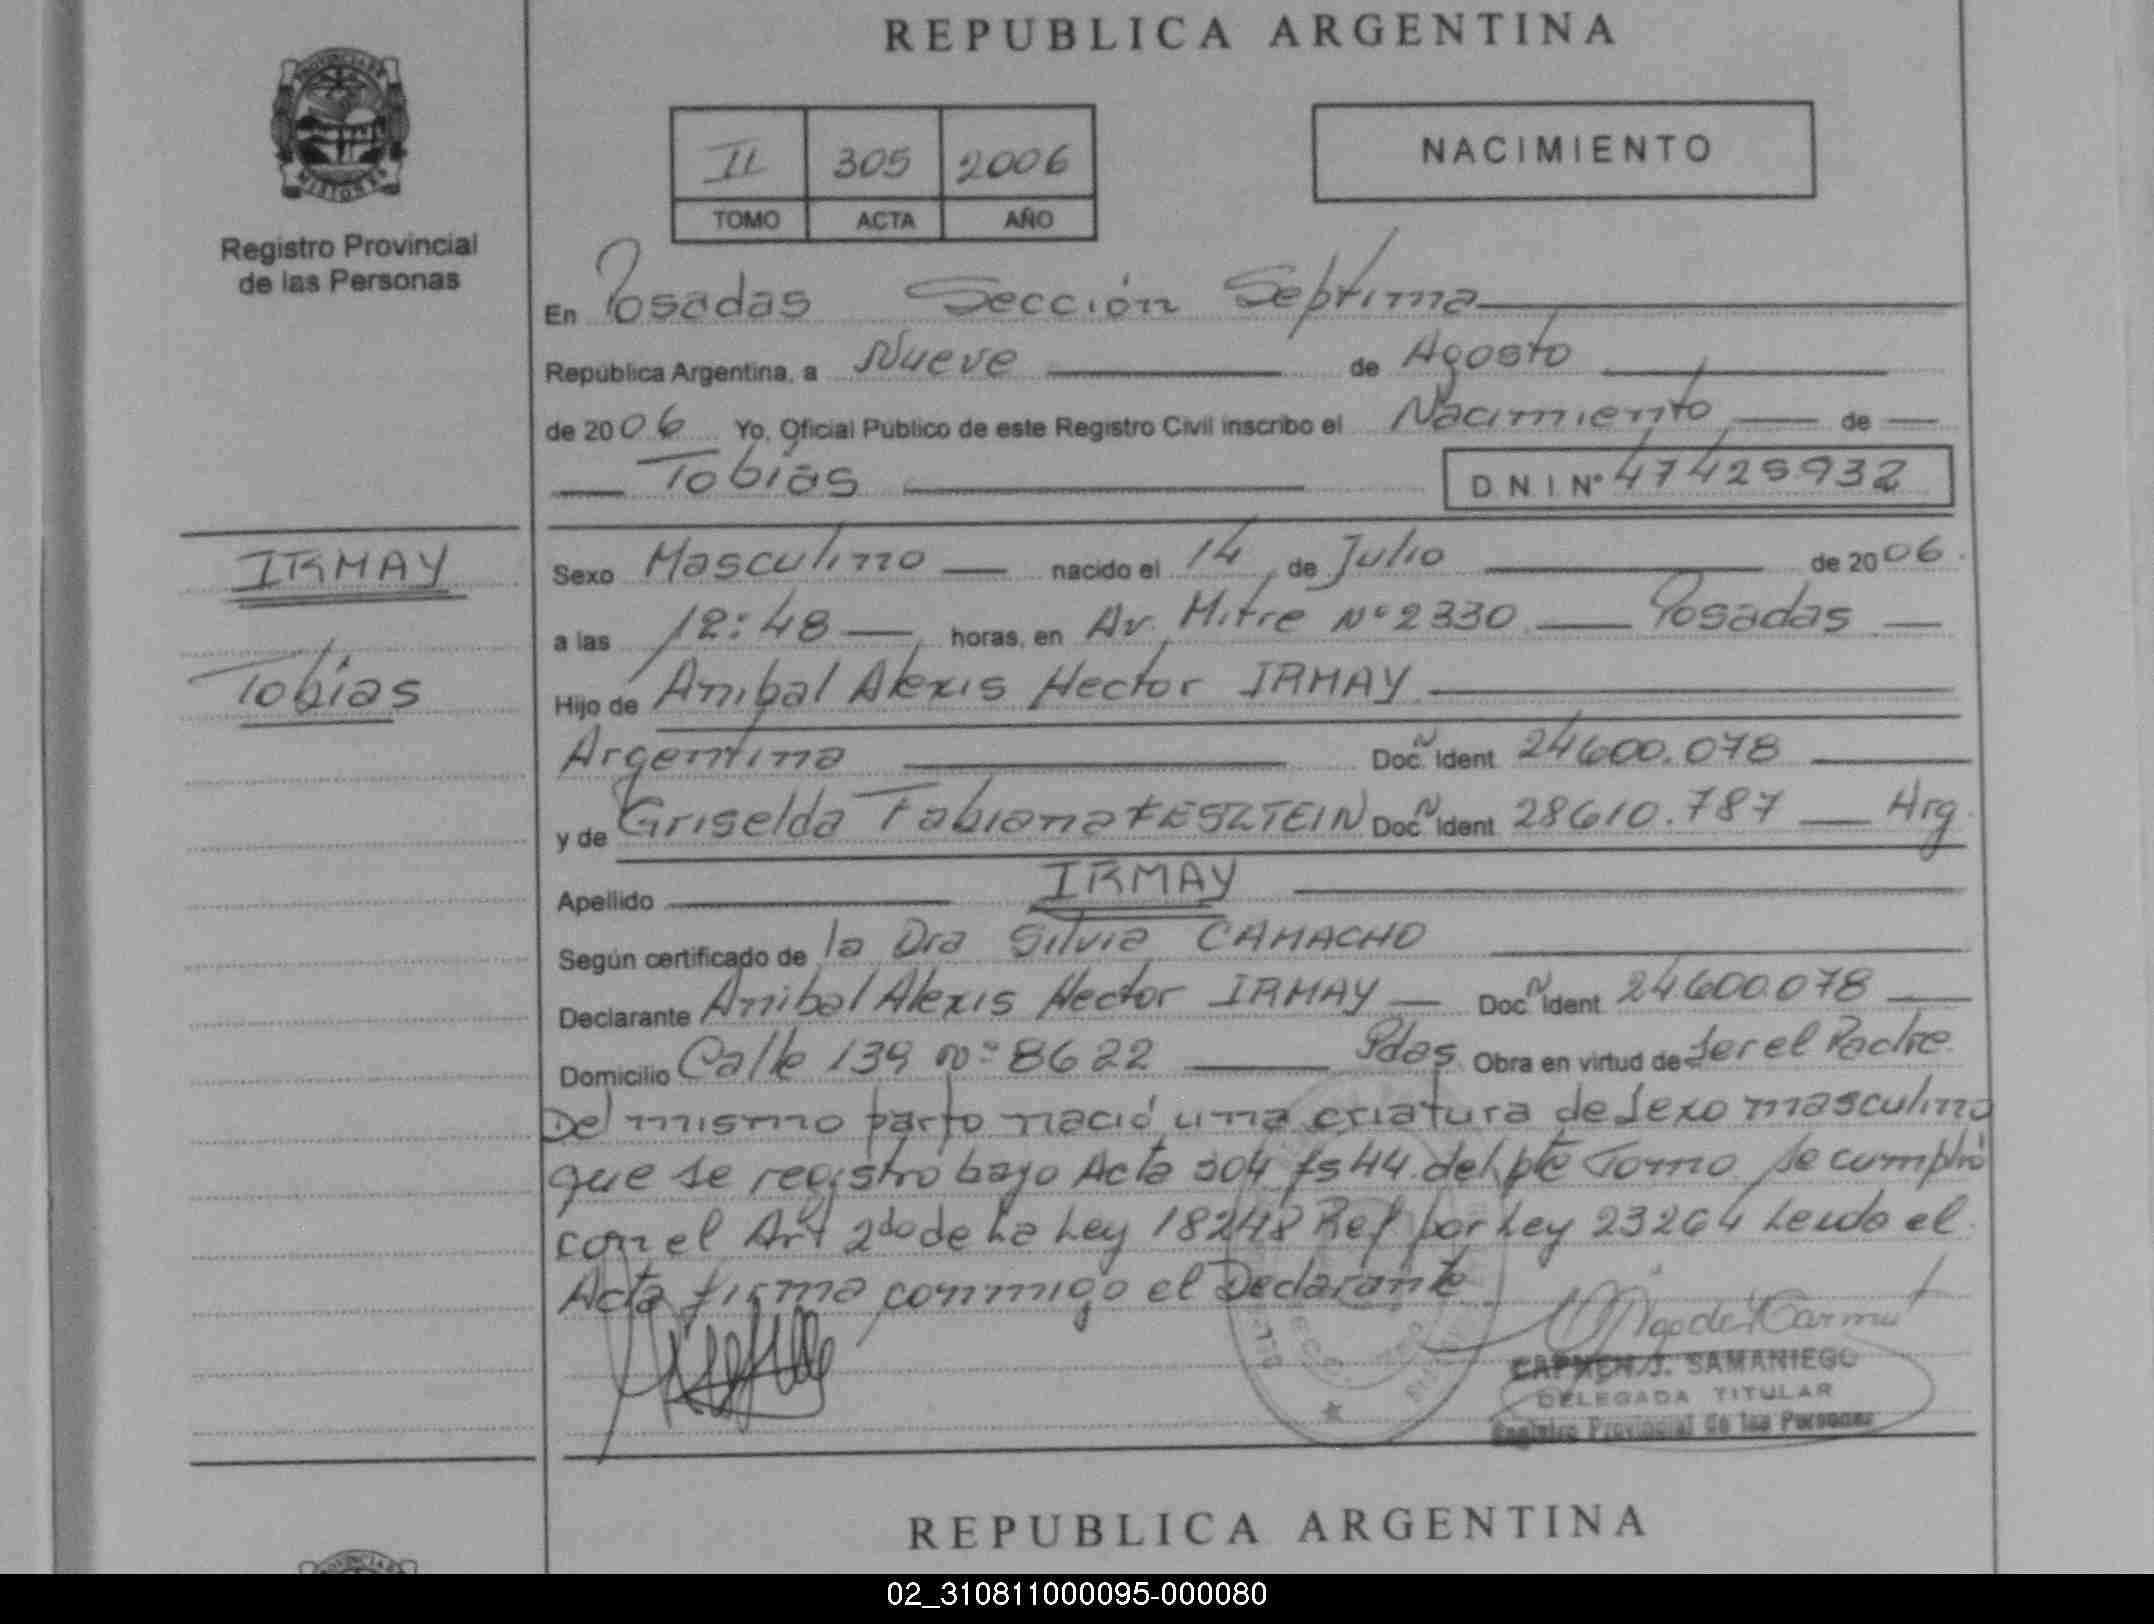 REPUBLICA ARGENTINA
II 305 2006
TOMO ACTA AÑO
NACIMIENTO
PROVINCIA DE
MISIONES
Registro Provincial
de las Personas
En Posadas Sección Septima
República Argentina, a Nueve de Agosto
de 2006 Yo, Oficial Público de este Registro Civil inscribo el Nacimiento de
Tobias
D.N.I.Nº 47425932
IRMAY
Tobias
Sexo Masculino nacido el 14 de Julio de 2006.
a las 12:48 horas, en Av. Mitre Nº 2330 Posadas
Hijo de Anibal Alexis Hector IRMAY
Argentina Doc. Ident 24600.078
y de Griselda Fabiana Doc Ident 28610.787 Arg
Apellido IRMAY
Según certificado de la Dra Silvia CAMACHO
Declarante Anibal Alexis Hector IRMAY Doc Ident 24.600.078
Domicilio Calle 139 nº 8622 Pdas. Obra en virtud de Ser el Padre.
Del mismo parto nació una criatura de Sexo masculino
que se registró bajo Acta 304 fs 44 del pte Tomo Se cumplió
con el Art 2do de La Ley 18248 Ref por Ley 23264 Leido el
Acta firma conmigo el Declarante
CARMEN J. SAMANIEGO
DELEGADA TITULAR
Registro Provincial de las Personas
REPUBLICA ARGENTINA
02_310811000095-000080